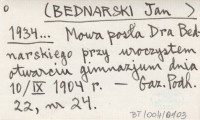 (BEDNARSKI Jan )
1934... Mowa posła Dra Bed-
narskiego przy uroczystem
otwarciu gimnazjum dnia
10/IX 1904 r. — Gaz. Podh.
22, nr 24.